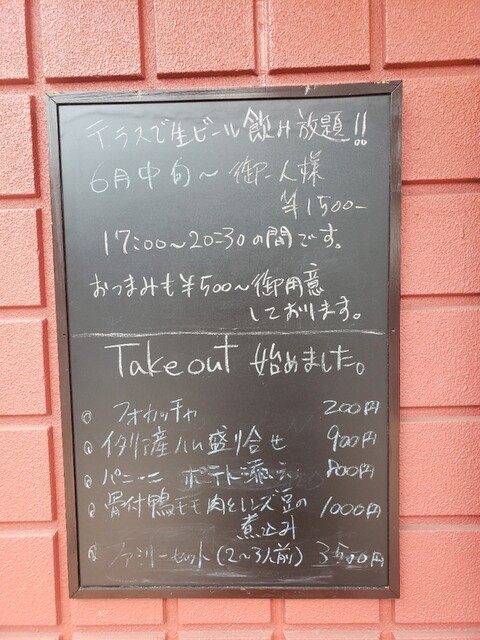 テラスで生ビール飲み放題!!
6月中旬～御一人様
¥1500-
17:00～20:30の間です。
おつまみも¥500～御用意
しております。
Takeout 始めました。
フォカッチャ 200円
イタリア産ハム盛り合せ 900円
パニーニ ポテト添え 800円
骨付鴨モモ肉とレンズ豆の 1000円
煮込み
ファミリーセット(2～3人前) 3500円